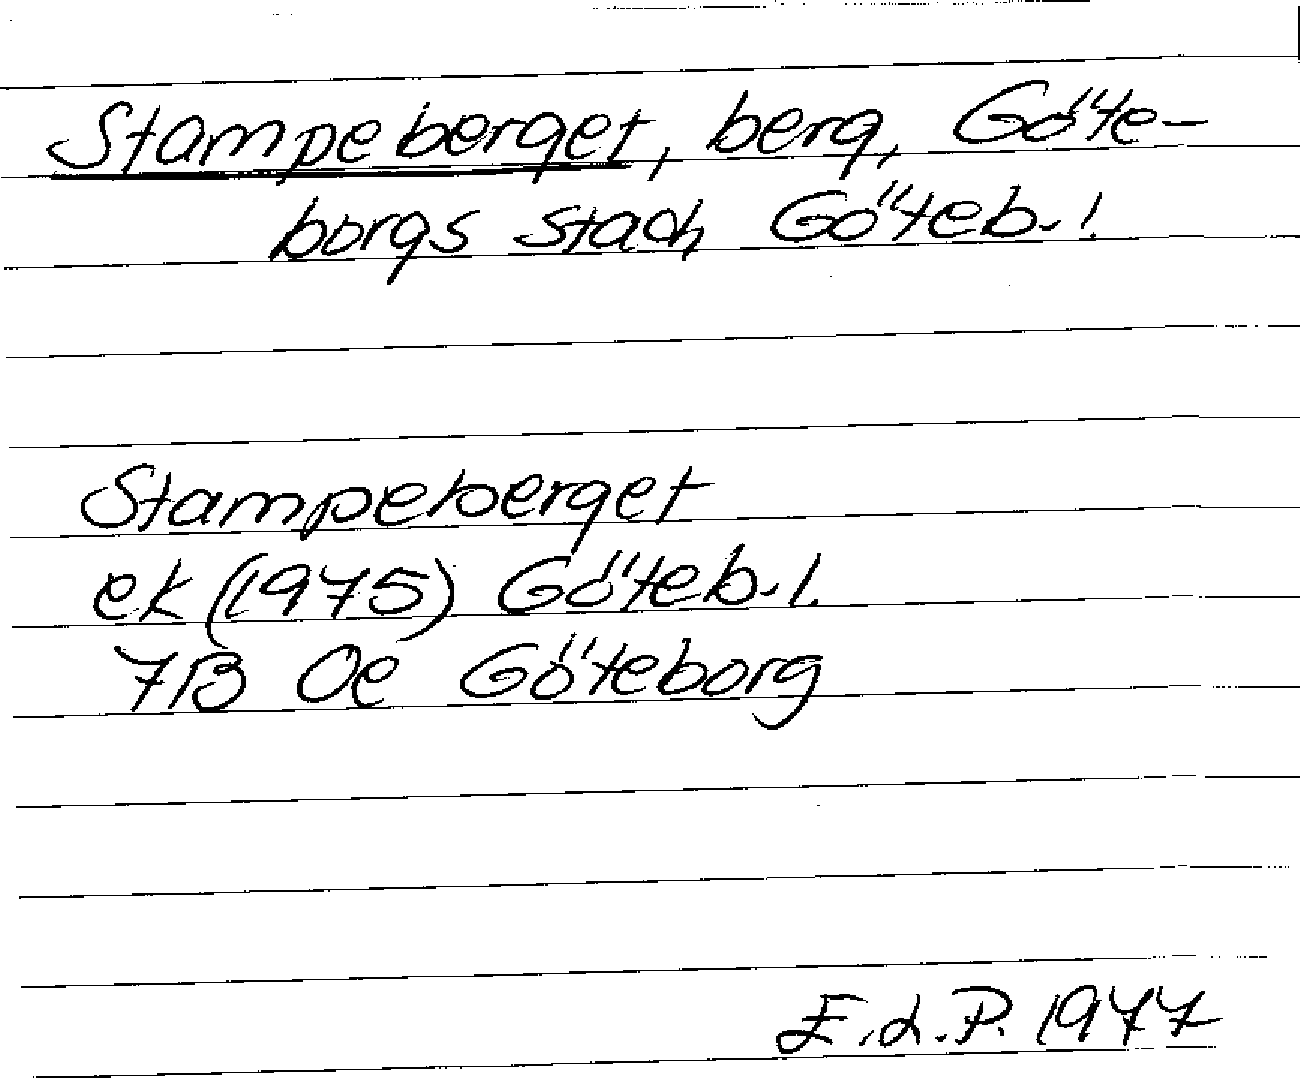 Stampeberget, berg, Göte-
borgs stad, Göteb. l.
Stampeberget
ek (1975) Göteb. l.
7B 0e Göteborg
E.L.P. 1977